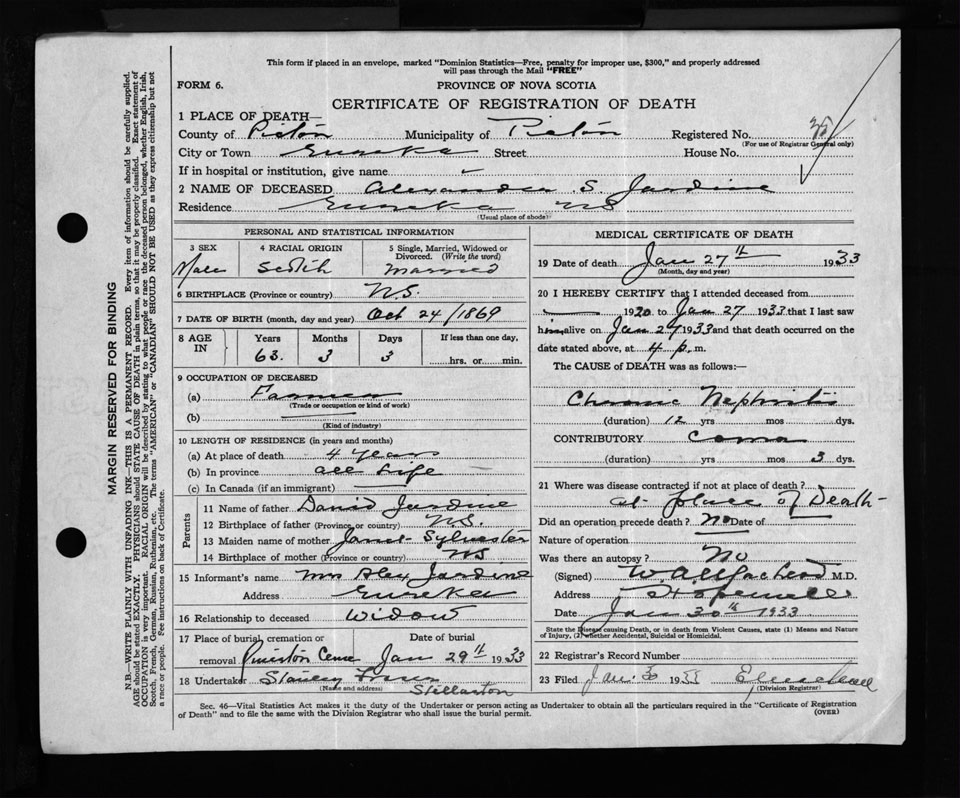 This form if placed in an envelope, marked "Dominion Statistics—Free, penalty for improper use, $300," and properly addressed
will pass through the Mail "FREE"
FORM 6.
PROVINCE OF NOVA SCOTIA
CERTIFICATE OF REGISTRATION OF DEATH
1 PLACE OF DEATH—
County of Pictou Municipality of Pictou Registered No.
(For use of Registrar General only)
City or Town Eureka Street House No.
If in hospital or institution, give name
2 NAME OF DECEASED Alexander S Jardine
Residence Eureka NS
(Usual place of abode)
PERSONAL AND STATISTICAL INFORMATION
3 SEX 4 RACIAL ORIGIN 5 Single, Married, Widowed or
Divorced. (Write the word)
Male Scotch Married
6 BIRTHPLACE (Province or country) N.S.
7 DATE OF BIRTH (month, day and year) Oct 24/1869
8 AGE IN Years Months Days If less than one day,
63 3 3 hrs. or min.
9 OCCUPATION OF DECEASED
(a) Farmer
(Trade or occupation or kind of work)
(b)
(Kind of industry)
10 LENGTH OF RESIDENCE (in years and months)
(a) At place of death 4 years
(b) In province all Life
(c) In Canada (if an immigrant)
Parents
11 Name of father David Jardine
12 Birthplace of father (Province or country) N.S.
13 Maiden name of mother Janet Sylvester
14 Birthplace of mother (Province or country) NS
15 Informant's name Mrs Alex Jardine
Address Eureka
16 Relationship to deceased Widow
17 Place of burial, cremation or Date of burial
removal Cem Jan 29th 1933
18 Undertaker Stanley Fraser
(Name and address) Stellarton
MEDICAL CERTIFICATE OF DEATH
19 Date of death Jan 27th 1933
(Month, day and year)
20 I HEREBY CERTIFY that I attended deceased from
1920 to Jan 27 1933 that I last saw
him alive on Jan 27 1933 and that death occurred on
date stated above, at 4 p. m.
The CAUSE of DEATH was as follows:—
Chronic Nephritis
(duration) 12 yrs mos dys.
CONTRIBUTORY Coma
(duration) yrs mos 3 dys.
21 Where was disease contracted if not at place of death?
at place of Death
Did an operation precede death? No Date of
Nature of operation
Was there an autopsy? No
(Signed) W.A. MacLeod M.D.
Address Hopewell
Date Jan 30th 1933
State the Disease causing Death, or in death from Violent Causes, state (1) Means and Nature
of Injury, (2) whether Accidental, Suicidal or Homicidal.
22 Registrar's Record Number
23 Filed Jan. 1933
(Division Registrar)
Sec. 46—Vital Statistics Act makes it the duty of the Undertaker or person acting as Undertaker to obtain all the particulars required in the "Certificate of Registration
of Death" and to file the same with the Division Registrar who shall issue the burial permit.
(OVER)
MARGIN RESERVED FOR BINDING
N.B.—WRITE PLAINLY WITH UNFADING INK—THIS IS A PERMANENT RECORD. Every item of information should be carefully supplied.
AGE should be stated EXACTLY. PHYSICIANS should STATE CAUSE OF DEATH in plain terms, so that it may be properly classified. Exact statement of
OCCUPATION is very important. RACIAL ORIGIN will be described by stating to what people or race the deceased person belonged, whether English, Irish,
Scotch, French, German, Russian, Ruthenian, etc. The terms "AMERICAN" or "CANADIAN" SHOULD NOT BE USED as they express citizenship but not
a race or people. Fee instructions on back of Certificate.